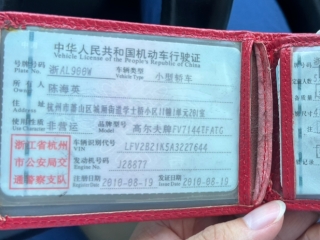 中华人民共和国机动车行驶证
Vehicle License of the People's Republic of China
号牌号码 浙AL900W 车辆类型 小型轿车
Plate No. Vehicle Type
所有人 陈海英
住址 杭州市萧山区城厢街道学士桥小区11幢1单元201室
使用性质 非营运 品牌型号 高尔夫牌FV7144TFATC
浙江省杭州市公安局交通警察支队
车辆识别代号 LFV2B21K5A3227644
VIN
发动机号码 J28877
Engine No.
注册日期 2010-08-19 发证日期 2010-08-19
Register Date Issue Date